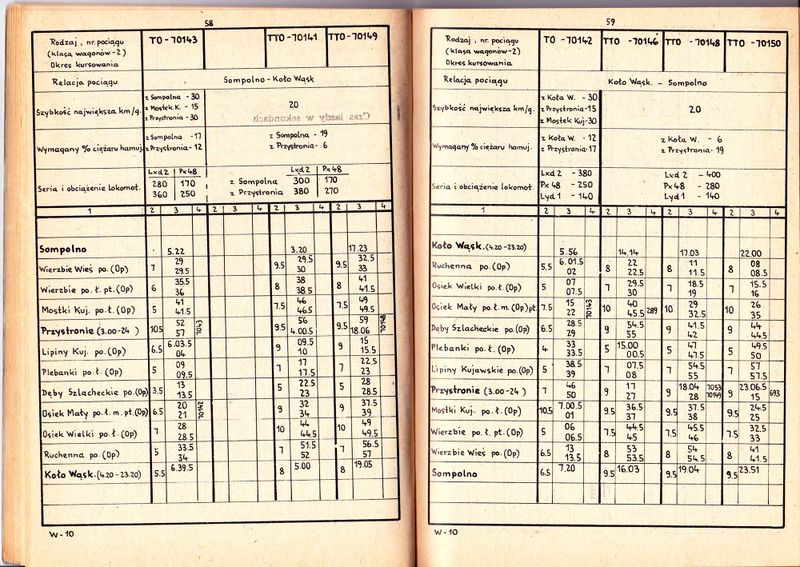 58
Rodzaj, nr. pociągu TO-70143 TTO-70141 TTO-70149
(klasa wagonów-2)
Okres kursowania
Relacja pociągu Sompolno - Koło Wąsk
Szybkość największa km/g. z Sompolna - 30 20
z Mostek.K. - 15
z Przystronia - 30
Czas jazdy w sekundach
Wymagany % ciężaru hamuj. z Sompolna - 17 z Sompolna - 19
z Przystronia - 12 z Przystronia - 6
Seria i obciążenie lokomot. Lxd2 Px48 Lxd2 Px48
280 170 z Sompolna 300 170
360 250 z Przystronia 380 270
1 2 3 4 2 3 4 2 3 4 2 3 4
Sompolno . 5.22 3.20 17.23
Wierzbie Wieś po.(Op) 7 29 29.5 9.5 29.5 30 9.5 32.5 33
Wierzbie po.ł.pt.(Op) 6 35.5 36 8 38 38.5 8 41 41.5
Mostki Kuj. po.ł.(Op) 5 41 41.5 7.5 46 46.5 7.5 49 49.5
Przystronie (3.00-24) 10.5 52 57 7043 9.5 56 4.00.5 9.5 59 18.06 70148
Lipiny Kuj. po.(Op) 6.5 6.03.5 04 9 09.5 10 9 15 15.5
Plebanki po.ł.(Op) 5 09 09.5 7 17 17.5 7 22.5 23
Dęby Szlacheckie po.(Op) 3.5 13 13.5 5 22.5 23 5 28 28.5
Osiek Mały po.ł.m.pt.(Op) 6.5 20 21 70142 9 32 34 9 37.5 39
Osiek Wielki po.ł.(Op) 7 28 28.5 10 44 44.5 10 49 49.5
Ruchenna po.(Op) 5 33.5 34 7 51.5 52 7 56.5 57
Koło Wąsk.(4.20-23.20) 5.5 6.39.5 8 5.00 8 19.05
W-10
59
Rodzaj, nr. pociągu TO-70142 TTO-70146 TTO-70148 TTO-70150
(klasa wagonów-2)
Okres kursowania
Relacja pociągu Koło Wąsk. - Sompolno
Szybkość największa km/g. z Koła W. - 30 20
z Przystronia-15
z Mostek Kuj-30
Wymagany % ciężaru hamuj. z Koła W. - 12 z Koła W. - 6
z Przystronia-17 z Przystronia - 19
Seria i obciążenie lokomot. Lxd2 - 380 Lxd2 - 400
Px48 - 250 Px48 - 280
Lyd1 - 140 Lyd1 - 140
1 2 3 4 2 3 4 2 3 4 2 3 4
Koło Wąsk.(4.20-23.20) 5.56 14.14 17.03 22.00
Ruchenna po.(Op) 5.5 6.01.5 02 8 22 22.5 8 11 11.5 8 08 08.5
Osiek Wielki po.ł.(Op) 5 07 07.5 7 29.5 30 7 18.5 19 7 15.5 16
Osiek Mały po.ł.m.(Op)pt. 7.5 15 22 70143 10 40 45.5 289 10 29 32.5 10 26 35
Dęby Szlacheckie po.(Op) 6.5 28.5 29 9 54.5 55 9 41.5 42 9 44 44.5
Plebanki po.ł.(Op) 4 33 33.5 5 15.00 00.5 5 47 47.5 5 49.5 50
Lipiny Kujawskie po.(Op) 5 38.5 39 7 07.5 08 7 54.5 55 7 57 57.5
Przystronie (3.00-24) 7 46 50 9 17 27 9 18.04 28 7053 70149 9 23.06.5 15 693
Mostki Kuj. po.ł.(Op) 10.5 7.00.5 01 9.5 36.5 37 9.5 37.5 38 9.5 24.5 25
Wierzbie po.ł. pt.(Op) 5 06 06.5 7.5 44.5 45 7.5 45.5 46 7.5 32.5 33
Wierzbie Wieś po.(Op) 6.5 13 13.5 8 53 53.5 8 54 54.5 8 41 41.5
Sompolno 6.5 7.20 9.5 16.03 9.5 19.04 9.5 23.51
W-10